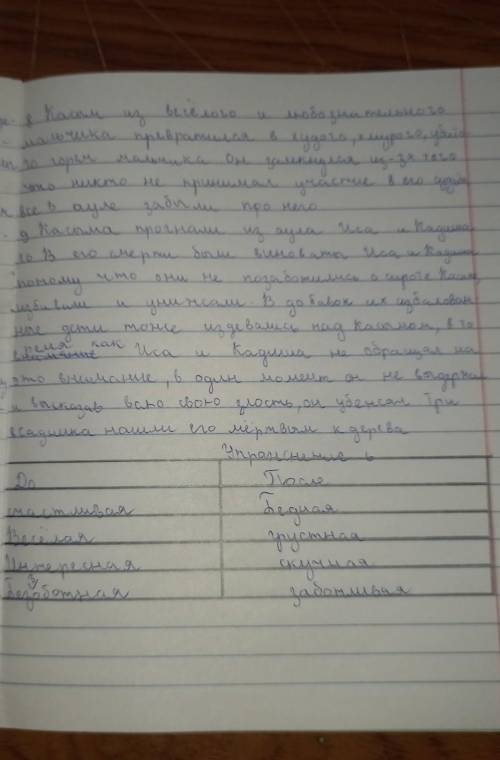 8 Касым из весёлого и любознательного
мальчика превратился в худого, хмурого,
го горем мальчика Он замкнулся из-за того
что никто не принимал участие в его
все в ауле забыли про него.
9 Касыма прогнали из аула Иса и Кадиша
10 В его смерти были виноваты Иса и Кадиша
потому что они не позаботились о сироте Касыме,
избивали и унижали. В добавок их избалован-
ные дети тоже издевались над Касымом, в то
время как Иса и Кадиша не обращал на
это внимание, в один момент он не выдержал
и высказав всю свою злость, он убежал Три
всадника нашли его мёртвым к дерева
Упражнение 6
До После
счастливая Бедная
Весёлая грустная
Интересная скучная
Беззаботная заботливая